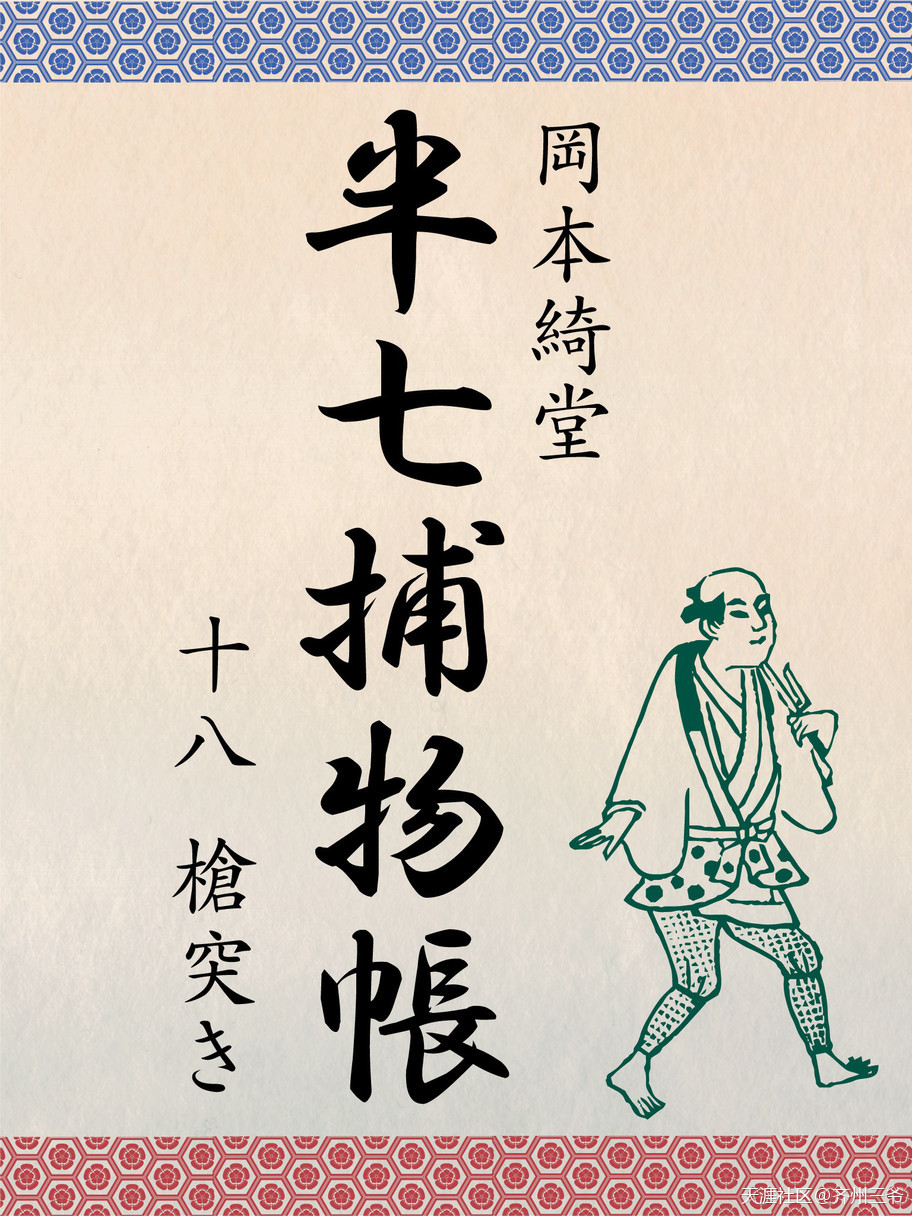 岡本綺堂
半七捕物帳
十八 槍突き
天涯社区@齐州三爷